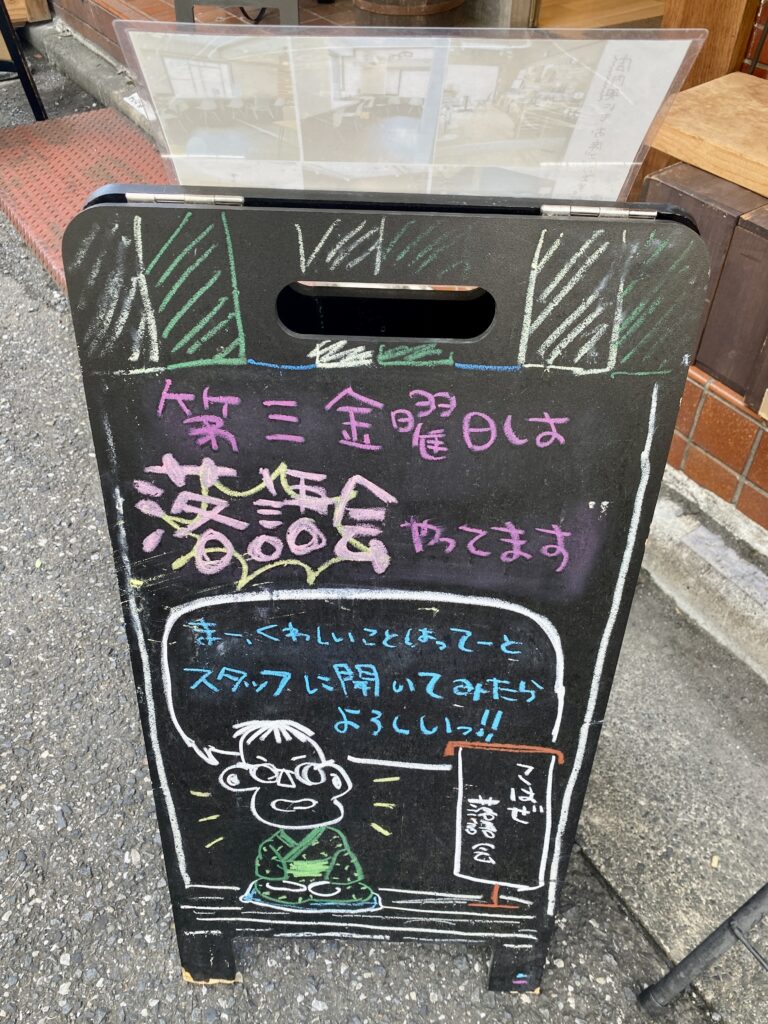 第三金曜日は
落語会やってます
まー、くわしいことはってーと
スタッフに開いてみたら
よろしいっ!!